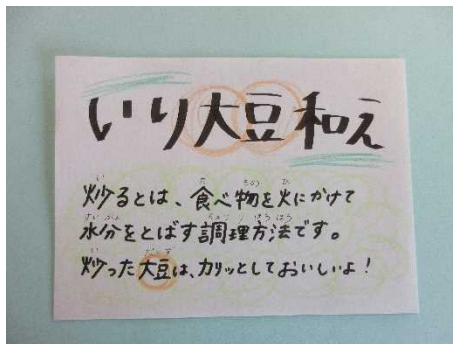 いり大豆和え
炒るとは、食べ物を火にかけて
水分をとばす調理方法です。
炒った大豆は、カリッとしておいしいよ!